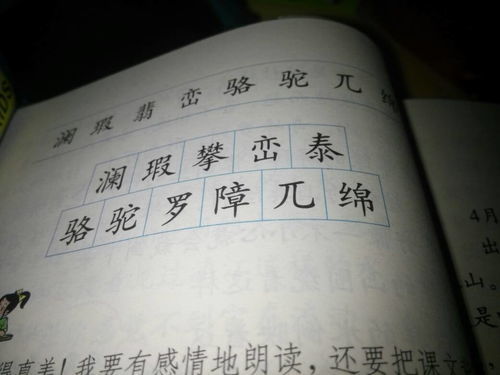 澜 瑕 翡 峦 骆 驼 兀 绵
澜 瑕 攀 峦 泰
骆 驼 罗 障 兀 绵
得真美！我要有感情地朗读，还要把课文
4月
出
山。
是